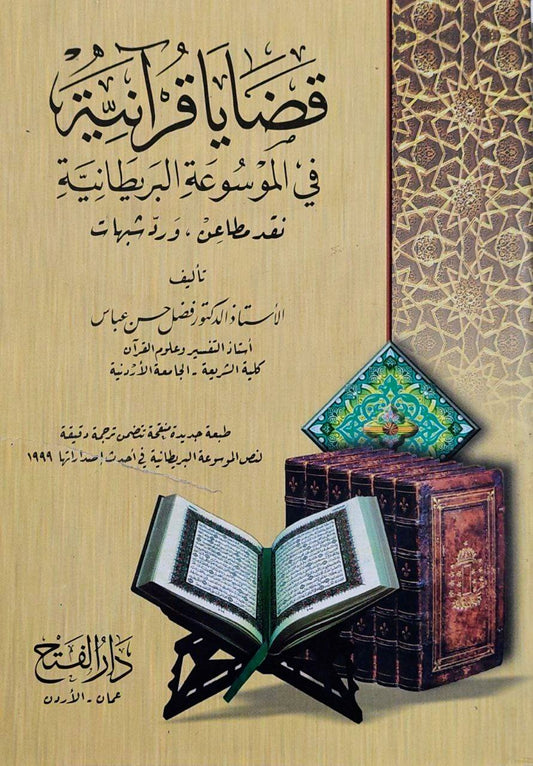 قضايا قرآنية
في الموسوعة البريطانية
نقد مطاعن، ورد شبهات
تأليف
الأستاذ الدكتور فضل حسن عباس
أستاذ التفسير وعلوم القرآن
كلية الشريعة - الجامعة الأردنية
طبعة جديدة منقحة تتضمن ترجمة دقيقة
لنص الموسوعة البريطانية في أحدث إصداراتها ١٩٩٩
دار الفتح
عمان - الأردن